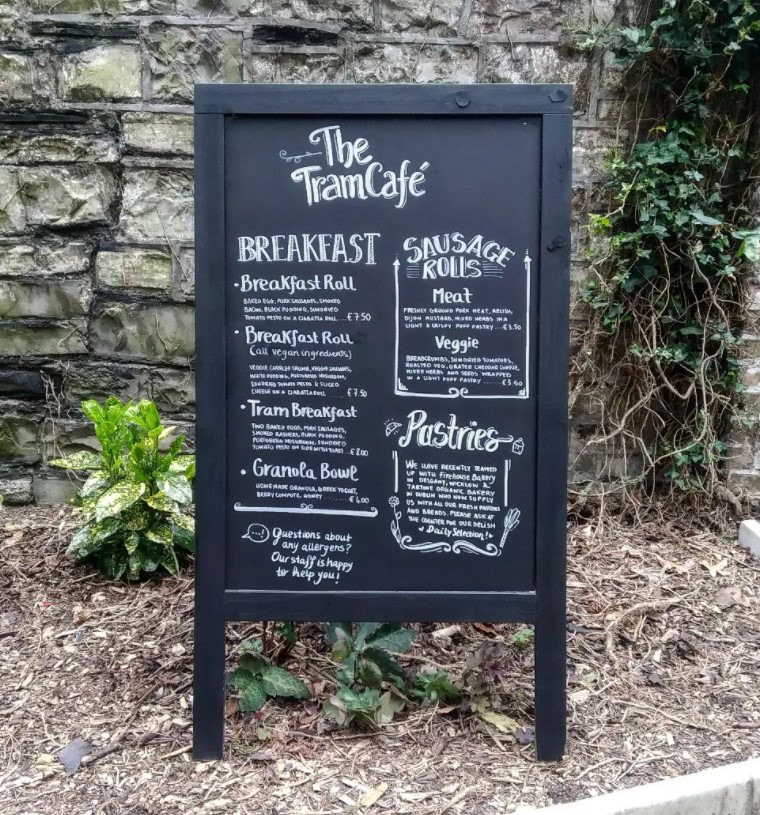 The
Tram Café
BREAKFAST
• Breakfast Roll
BAKED EGG, PORK SAUSAGES, SMOKED
BACON, BLACK PUDDING, SUNDRIED
TOMATO PESTO ON A CIABATTA ROLL ...€7.50
• Breakfast Roll
(all vegan ingredients)
VEGGIE SAUSAGES,
WHITE PUDDING, PORTOBELLO MUSHROOM,
SUNDRIED TOMATO PESTO & SLICED
CHEESE ON A CIABATTA ROLL €7.50
• Tram Breakfast
TWO BAKED EGGS, PORK SAUSAGES,
SMOKED RASHERS, BLACK PUDDING,
PORTOBELLO MUSHROOM, SUNDRIED
TOMATO PESTO ON SIDE WITH TOAST ...€8.00
• Granola Bowl
HOME MADE GRANOLA, GREEK YOGURT,
BERRY COMPOTE, HONEY ........ €4.00
Questions about
any allergens?
Our staff is happy
to help you!
SAUSAGE
ROLLS
Meat
FRESHLY GROUND PORK MEAT, RELISH,
DIJON MUSTARD, MIXED HERBS IN A
LIGHT & CRISPY PUFF PASTRY ...€3.50
Veggie
BREADCRUMBS, SUNDRIED TOMATOES,
ROASTED VEG, GRATED CHEDDAR CHEESE,
MIXED HERBS AND SEEDS WRAPPED
IN A LIGHT PUFF PASTRY ........ €3.50
Pastries
WE HAVE RECENTLY TEAMED
UP WITH Firehouse Bakery
IN DELGANY, WICKLOW &
TARTINE ORGANIC BAKERY
IN DUBLIN WHO NOW SUPPLY
US WITH ALL OUR FRESH PASTRIES
AND BREADS. PLEASE ASK AT
THE COUNTER FOR OUR DELISH
Daily Selection!